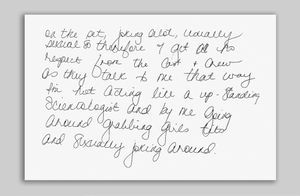 on the set, joking alot, usually
sexual & therefore I get no
respect from the Cast & Crew
as they talk to me that way
for not acting like a up-standing
Scientologist and by me going
around grabbing girls tits
and sexually joking around.